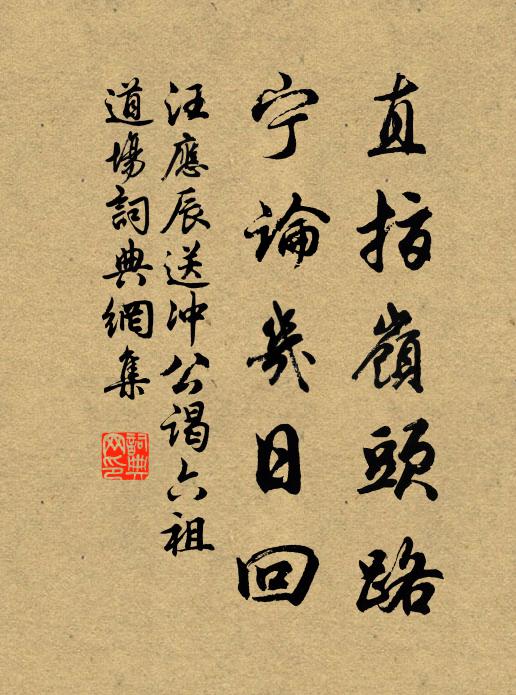 直指嶺頭路
宁論幾日回
汪應辰送沖公謁六祖
道場詞典網集
詞典
网印